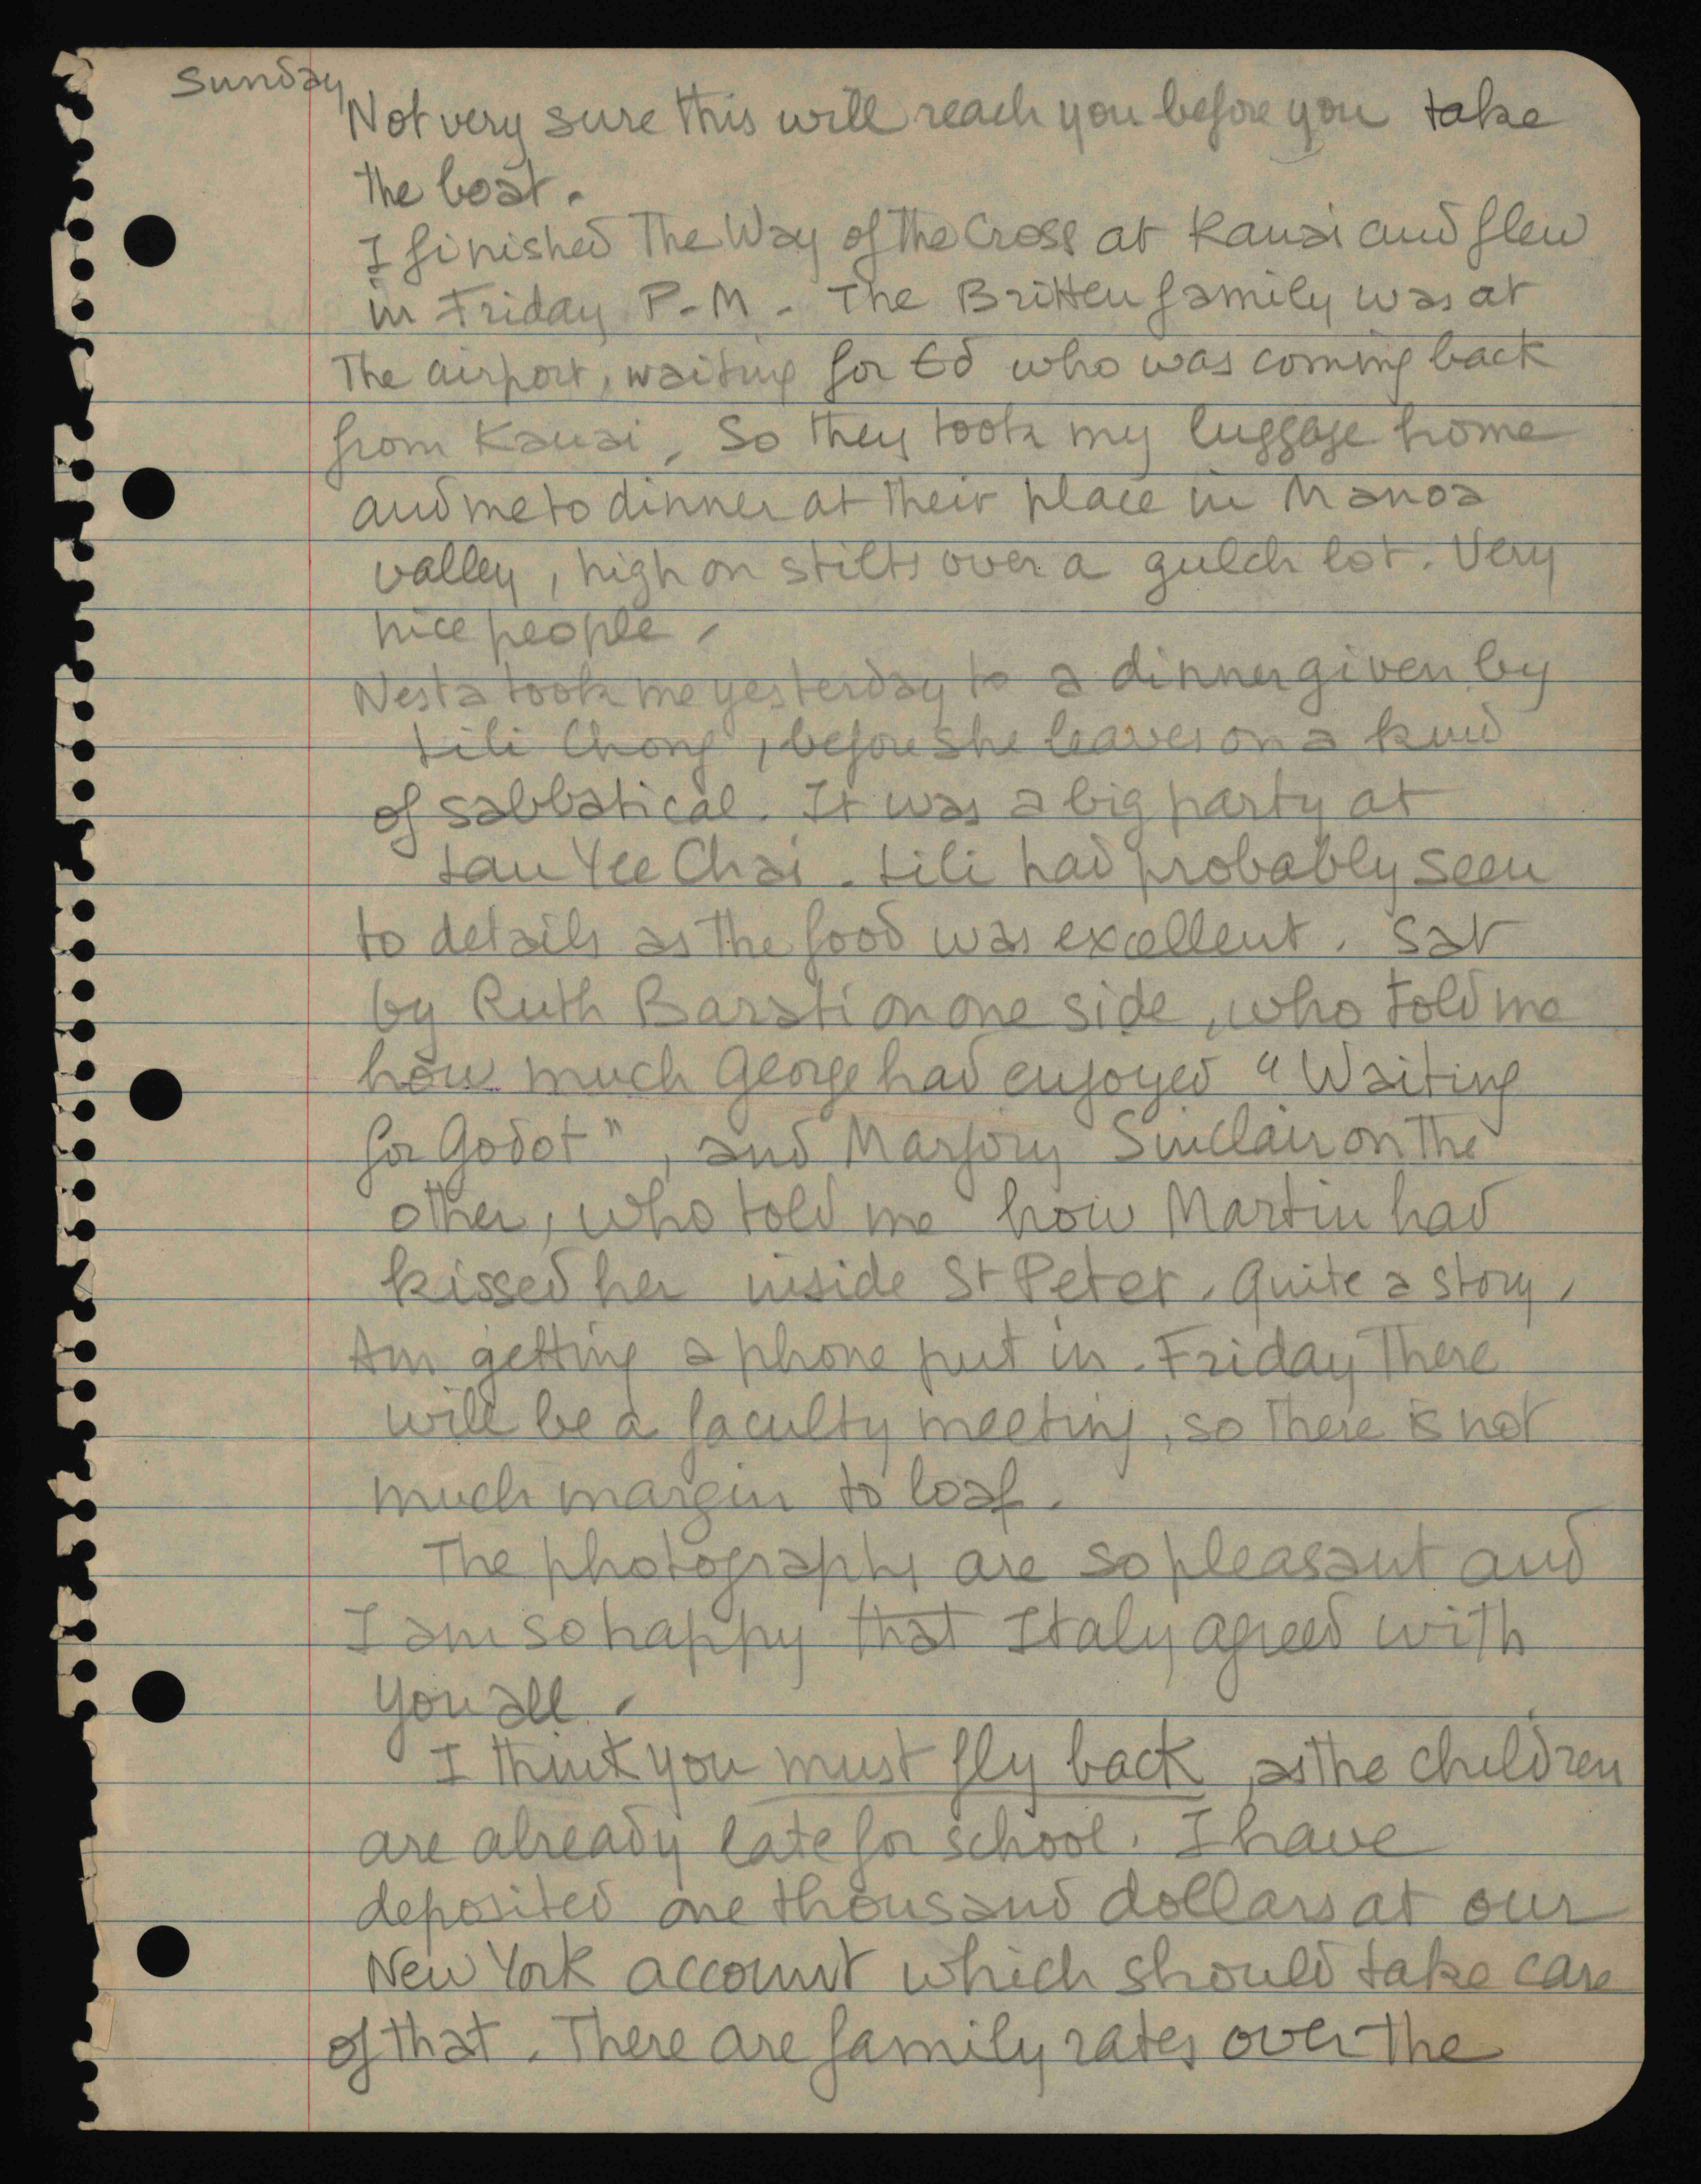 Sunday
Not very sure this will reach you before you take
the boat.
I finished The Way of the Cross at Kauai and flew
in Friday P.M. The Britten family was at
The airport, waiting for Ed who was coming back
from Kauai. So they took my luggage home
and me to dinner at their place in Manoa
valley, high on stilts over a gulch lot. Very
nice people.
Nesta took me yesterday to a dinner given by
Lili Chong, before she leaves on a kind
of sabbatical. It was a big party at
Lau Yee Chai. Lili had probably seen
to details as the food was excellent. Sat
by Ruth Barati on one side, who told me
how much George had enjoyed "Waiting
for Godot", and Marjory Sinclair on the
other, who told me how Martin had
kissed her inside St Peter. Quite a story.
Am getting a phone put in. Friday There
will be a faculty meeting, so there is not
much margin to loaf.
The photographs are so pleasant and
I am so happy that Italy agreed with
you all.
I think you must fly back, as the children
are already late for school. I have
deposited one thousand dollars at our
New York account which should take care
of that. There are family rates over the